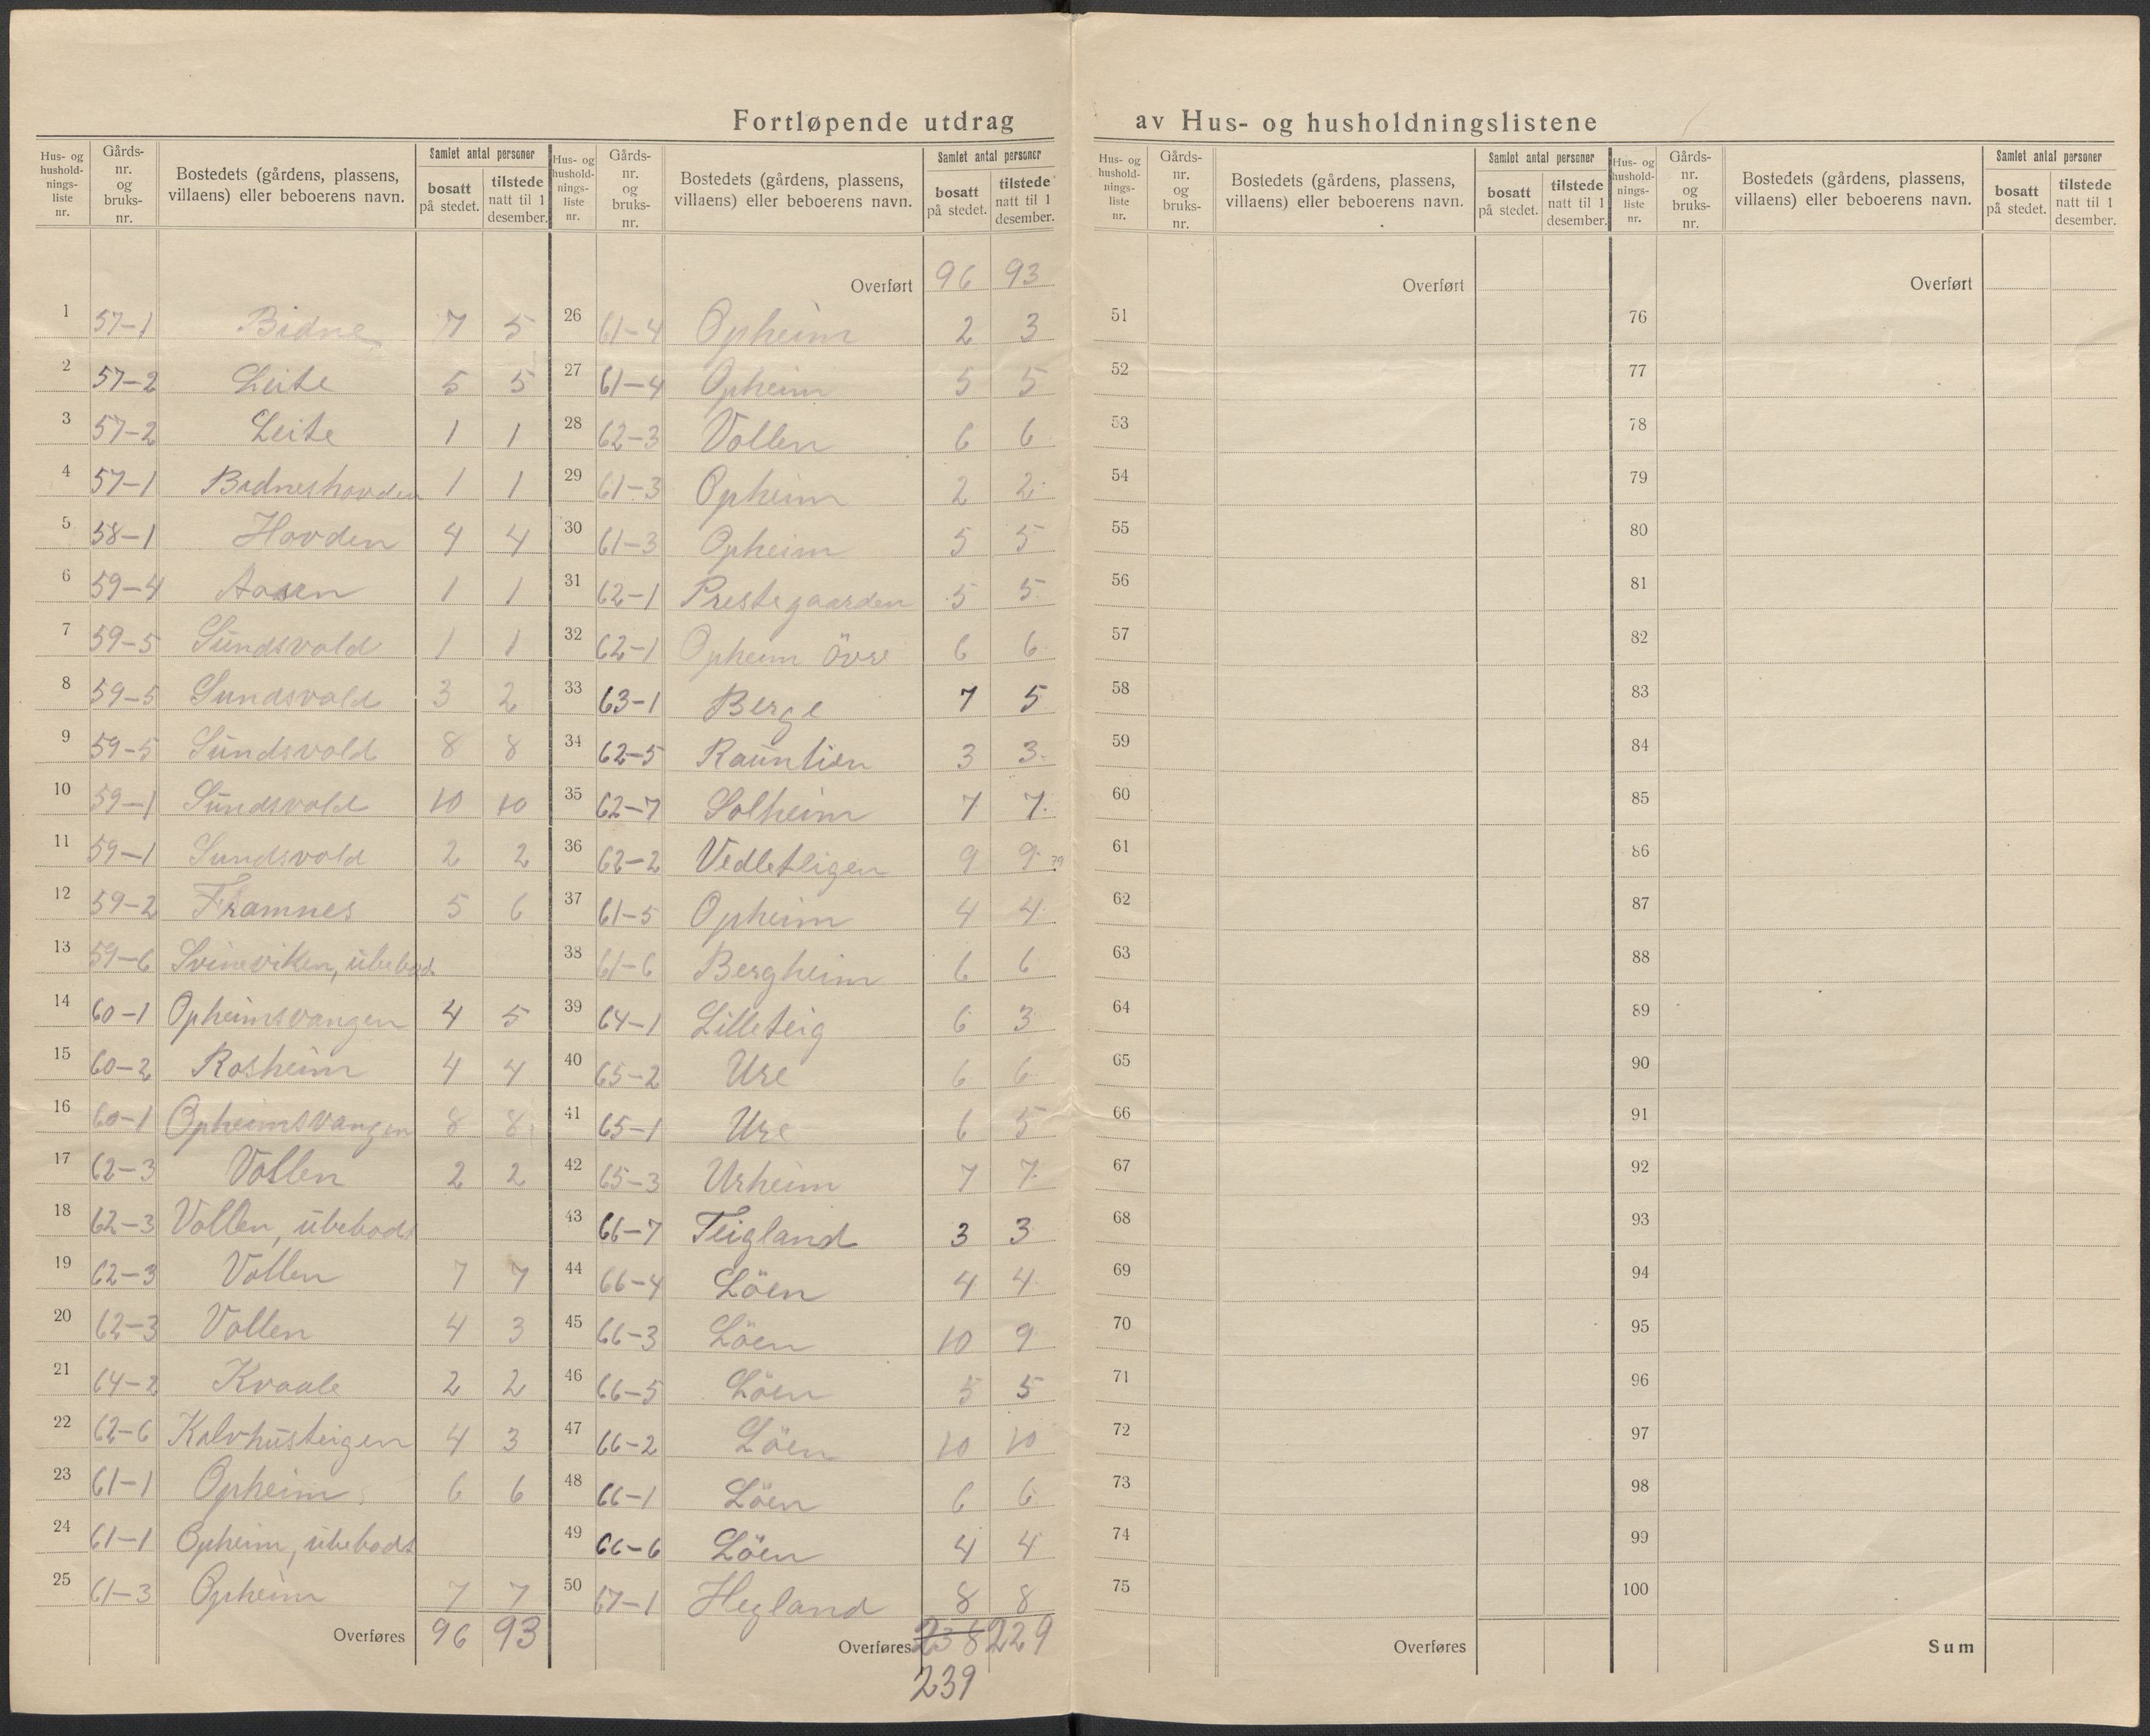 Fortløpende utdrag av Hus- og husholdningslistene
Hus- og husholdningsliste nr. Gårdsnr. og bruksnr. Bostedets (gårdens, plassens, villaens) eller beboerens navn. Samlet antal personer bosatt på stedet. tilstede natt til 1 desember.
1 57-1 Bidne 7 5
2 57-2 Leite 5 5
3 57-2 Leite 1 1
4 57-1 Bidneshovden 1 1
5 58-1 Hovden 4 4
6 59-4 Aasen 1 1
7 59-5 Sundsvold 1 1
8 59-5 Sundsvold 3 2
9 59-5 Sundsvold 8 8
10 59-1 Sundsvold 10 10
11 59-1 Sundsvold 2 2
12 59-2 Framnes 5 6
13 59-6 Svineviken, ubebodt
14 60-1 Opheimsvangen 4 5
15 60-2 Rosheim 4 4
16 60-1 Opheimsvangen 8 8
17 62-3 Vollen 2 2
18 62-3 Vollen, ubebodt
19 62-3 Vollen 7 7
20 62-3 Vollen 4 3
21 64-2 Kvaale 2 2
22 62-6 Kalvhusteigen 4 3
23 61-1 Opheim 6 6
24 61-1 Opheim, ubebodt
25 61-3 Opheim 7 7
Overføres 96 93
Hus- og husholdningsliste nr. Gårdsnr. og bruksnr. Bostedets (gårdens, plassens, villaens) eller beboerens navn. Samlet antal personer bosatt på stedet. tilstede natt til 1 desember.
Overført 96 93
26 61-4 Opheim 2 3
27 61-4 Opheim 5 5
28 62-3 Vollen 6 6
29 61-3 Opheim 2 2
30 61-3 Opheim 5 5
31 62-1 Prestegaarden 5 5
32 62-1 Opheim övre 6 6
33 63-1 Berge 7 5
34 62-5 Raunlien 3 3
35 62-7 Solheim 7 7
36 62-2 Vedleteigen 9 9
37 61-5 Opheim 4 4
38 61-6 Bergheim 6 6
39 64-1 Lilleteig 6 3
40 65-2 Ure 6 6
41 65-1 Ure 6 5
42 65-3 Urheim 7 7
43 66-7 Teigland 3 3
44 66-4 Löen 4 4
45 66-3 Löen 10 9
46 66-5 Löen 5 5
47 66-2 Löen 10 10
48 66-1 Löen 6 6
49 66-6 Löen 4 4
50 67-1 Hegland 8 8
Overføres 238 229
239
Hus- og husholdningsliste nr. Gårdsnr. og bruksnr. Bostedets (gårdens, plassens, villaens) eller beboerens navn. Samlet antal personer bosatt på stedet. tilstede natt til 1 desember.
Overført
51
52
53
54
55
56
57
58
59
60
61
62
63
64
65
66
67
68
69
70
71
72
73
74
75
Overføres
Hus- og husholdningsliste nr. Gårdsnr. og bruksnr. Bostedets (gårdens, plassens, villaens) eller beboerens navn. Samlet antal personer bosatt på stedet. tilstede natt til 1 desember.
Overført
76
77
78
79
80
81
82
83
84
85
86
87
88
89
90
91
92
93
94
95
96
97
98
99
100
Sum